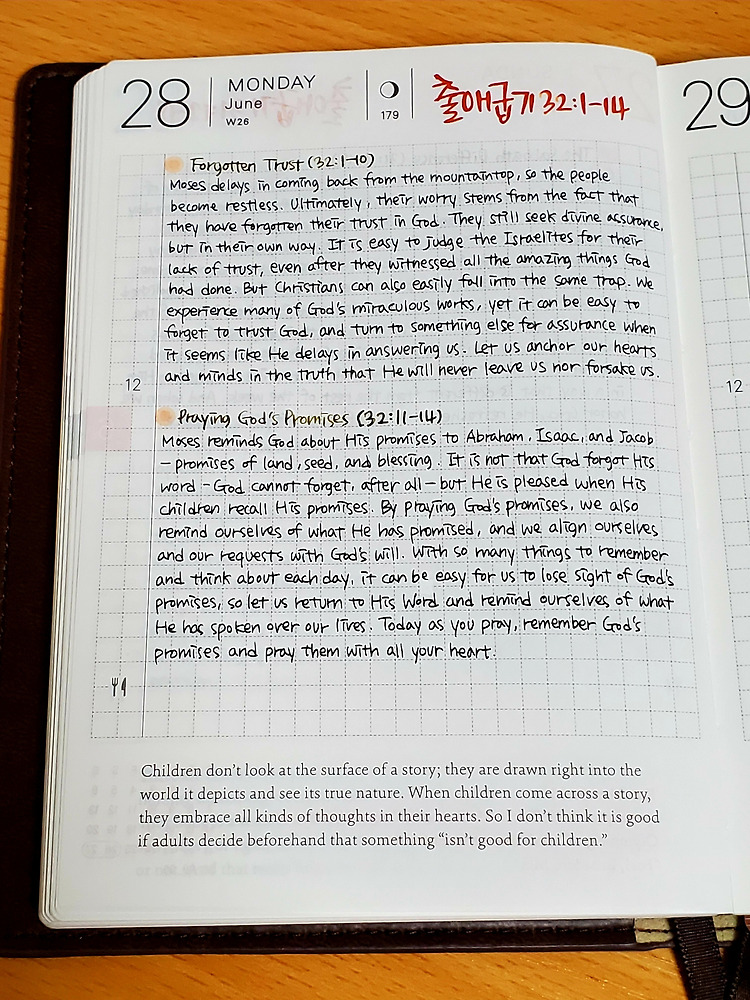 28
MONDAY
June
W26
179
출애굽기 32:1-14
29
Forgotten Trust (32:1-10)
Moses delays in coming back from the mountaintop, so the people
become restless. Ultimately, their worry stems from the fact that
they have forgotten their trust in God. They still seek divine assurance,
but in their own way. It is easy to judge the Israelites for their
lack of trust, even after they witnessed all the amazing things God
had done. But Christians can also easily fall into the same trap. We
experience many of God's miraculous works, yet it can be easy to
forget to trust God, and turn to something else for assurance when
it seems like He delays in answering us. Let us anchor our hearts
and minds in the truth that He will never leave us nor forsake us.
12
12
Praying God's Promises (32:11-14)
Moses reminds God about His promises to Abraham, Isaac, and Jacob
– promises of land, seed, and blessing. It is not that God forgot His
word – God cannot forget, after all – but He is pleased when His
children recall His promises. By praying God's promises, we also
remind ourselves of what He has promised, and we align ourselves
and our requests with God's will. With so many things to remember
and think about each day, it can be easy for us to lose sight of God's
promises, so let us return to His Word and remind ourselves of what
He has spoken over our lives. Today as you pray, remember God's
promises and pray them with all your heart.
Children don't look at the surface of a story; they are drawn right into the
world it depicts and see its true nature. When children come across a story,
they embrace all kinds of thoughts in their hearts. So I don't think it is good
if adults decide beforehand that something “isn't good for children.”